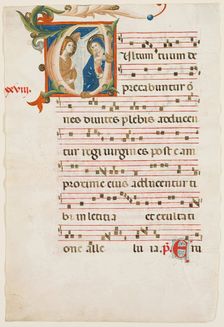 ultum tuum de
precabuntur o
nes divites plebis adducen
tur regi virgines post eam
proxime eius adducentur ti
bi in leticia et exultati
one alle lu ia. p. Eru
xxviii.